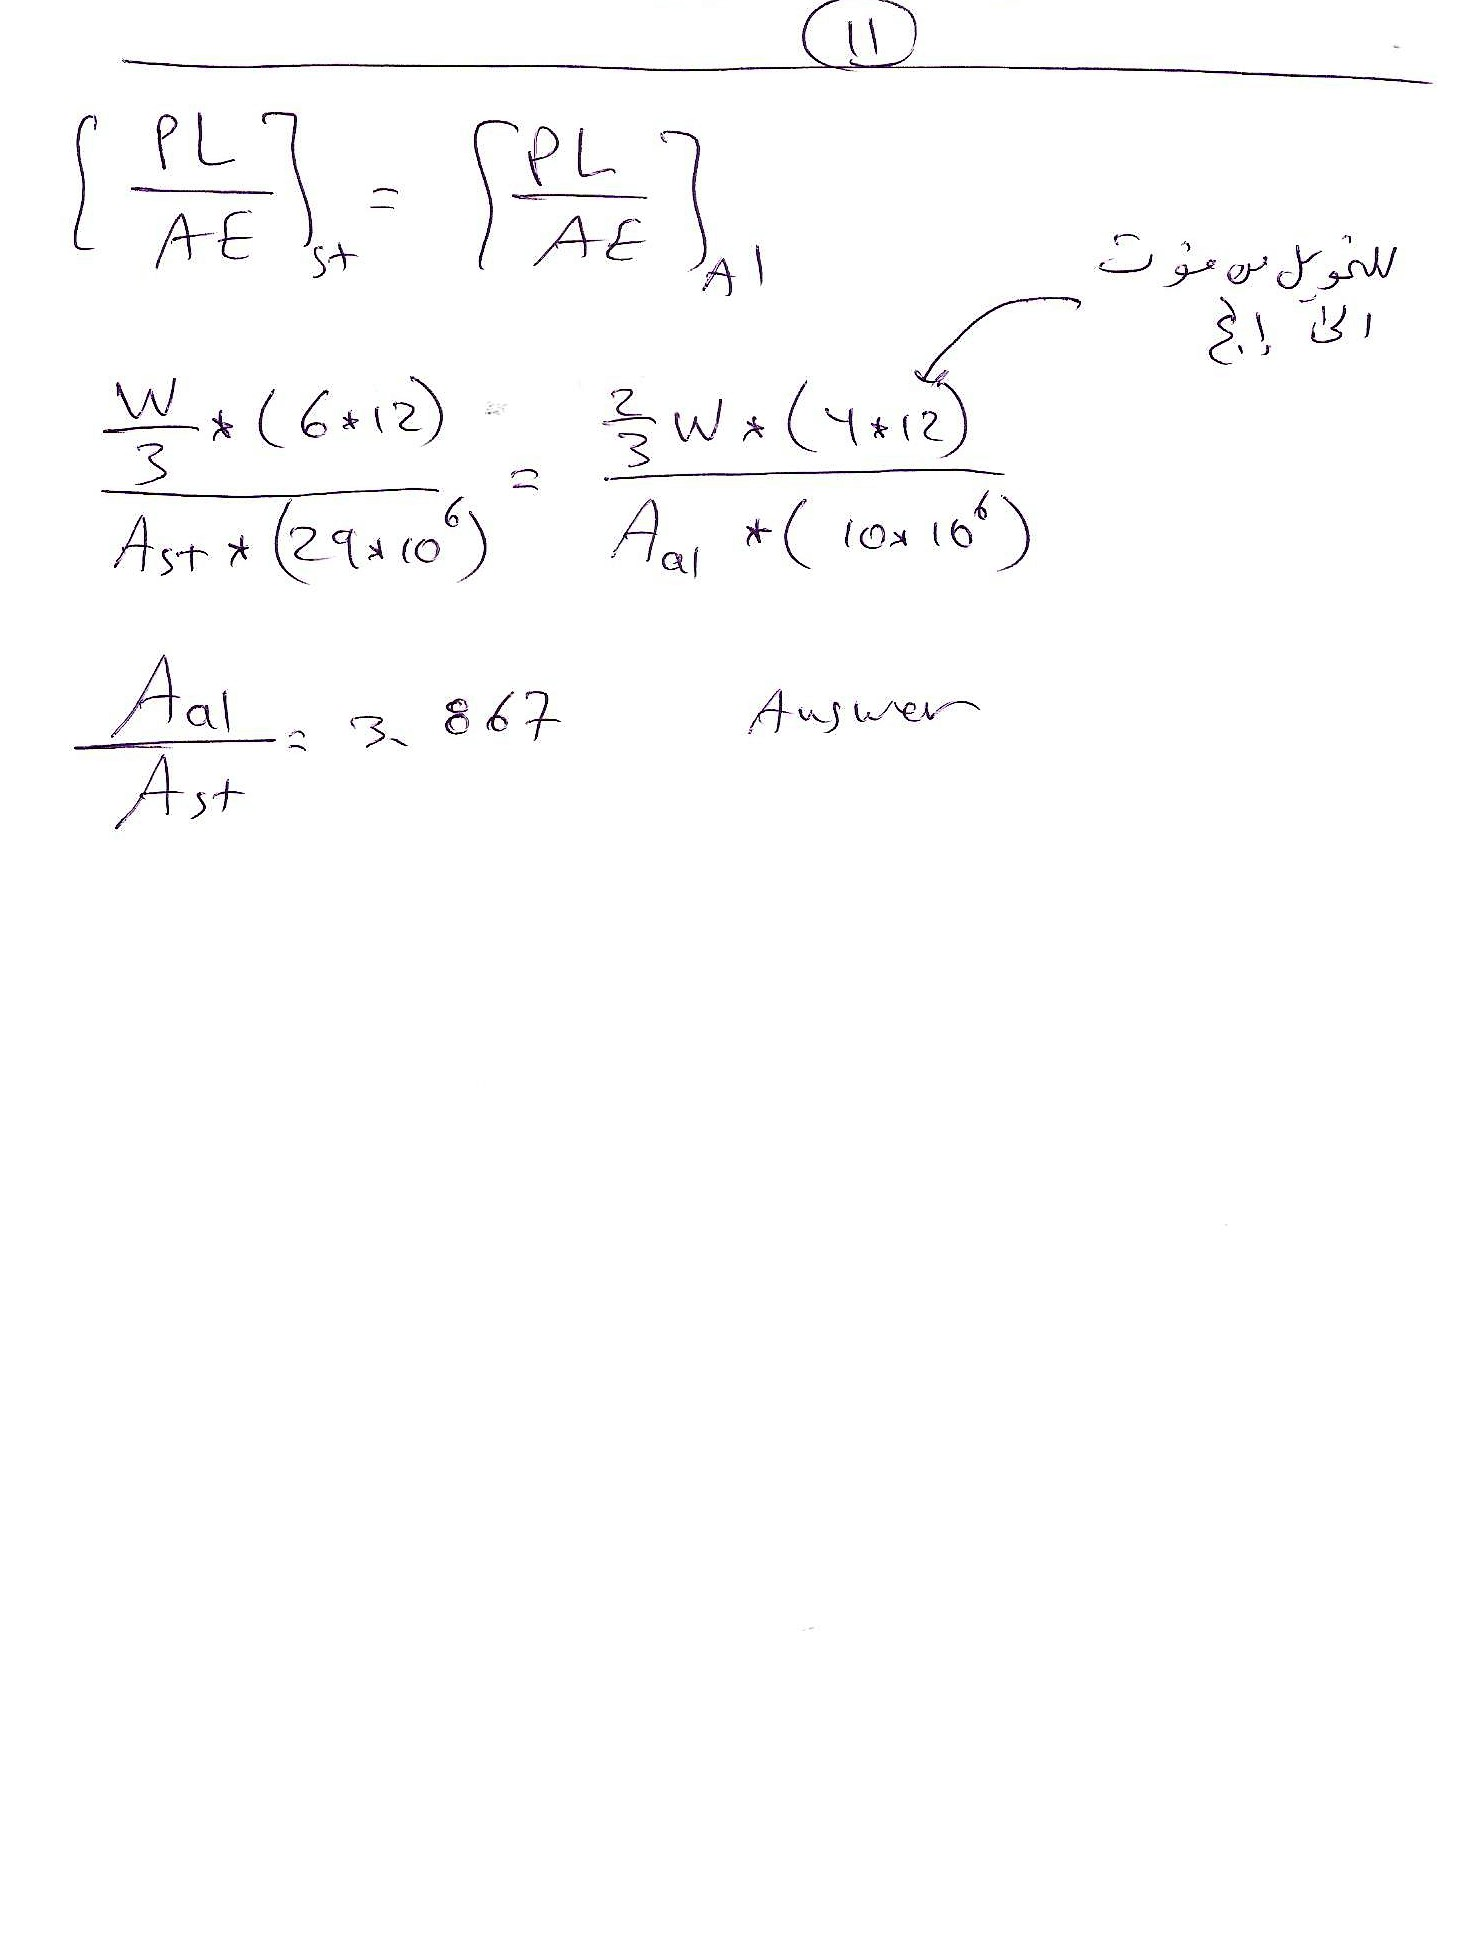 11
[PL/AE]st = [PL/AE]Al
للتحويل من فوت
الى إنج
W/3 * (6*12) / Ast * (29*10^6) = 2/3 W * (4*12) / Aal * (10*10^6)
Aal/Ast = 3.867 Answer